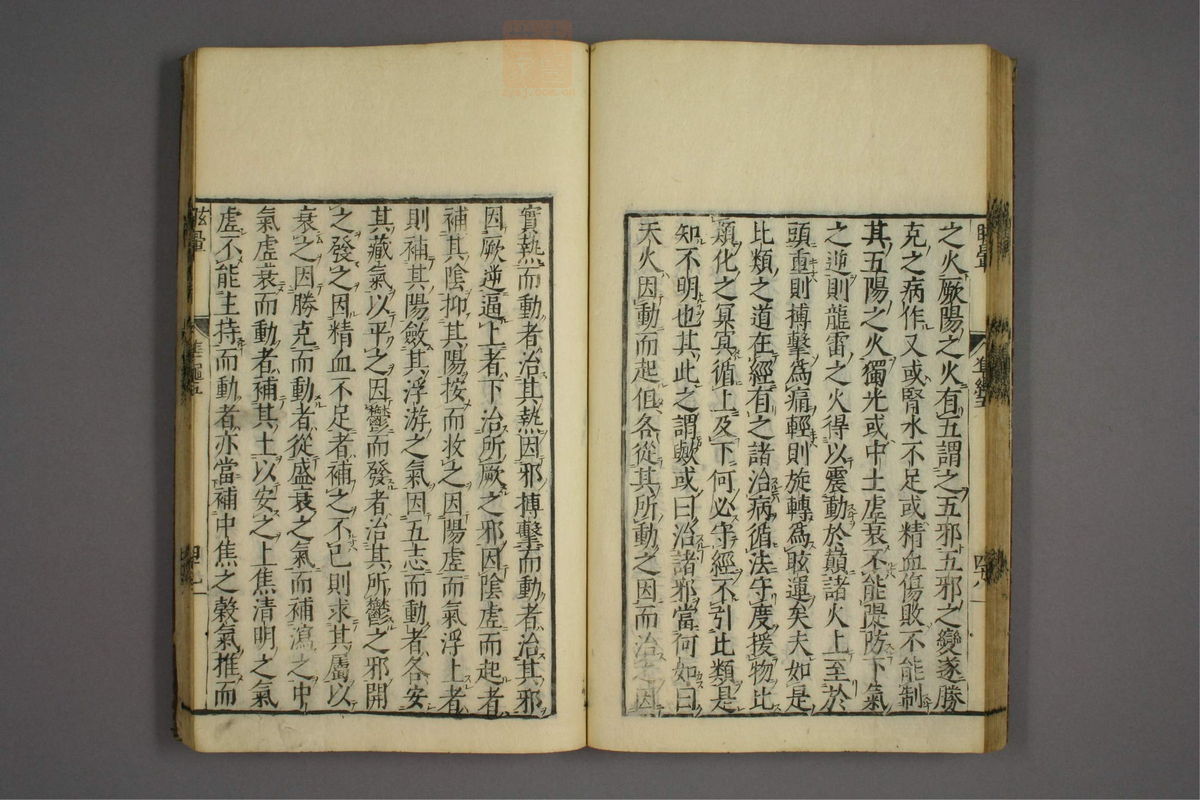 之火厥陽之火有五謂之五邪五邪之變遂勝
克之病作又或腎水不足或精血傷敗不能制
其五陽之火獨光或中土虛衰不能隄防下氣
之逆則龍雷之火得以震動於顛諸火上至於
頭重則搏擊爲痛輕則旋轉爲眩運矣夫如是
比類之道在經有之諸治病循法守度援物比
類化之冥冥循上及下何必守經不引比類是
知不明也其此之謂歟或曰治諸邪當何如曰
天火因動而起但各從其所動之因而治之因
實熱而動者治其熱因邪搏擊而動者治其邪
因厥逆逼上者下治所厥之邪因陰虛而起者
補其陰抑其陽按而收之因陽虛而氣浮上者
則補其陽斂其浮游之氣因五志而動者各安
其藏氣以平之因鬱而發者治其所鬱之邪開
之發之因精血不足者補之不已則求其屬以
衰之因勝克而動者從盛衰之氣而補瀉之中
氣虛衰而動者補其土以安之上焦清明之氣
虛不能主持而動者亦當補中焦之穀氣推而
眩暈